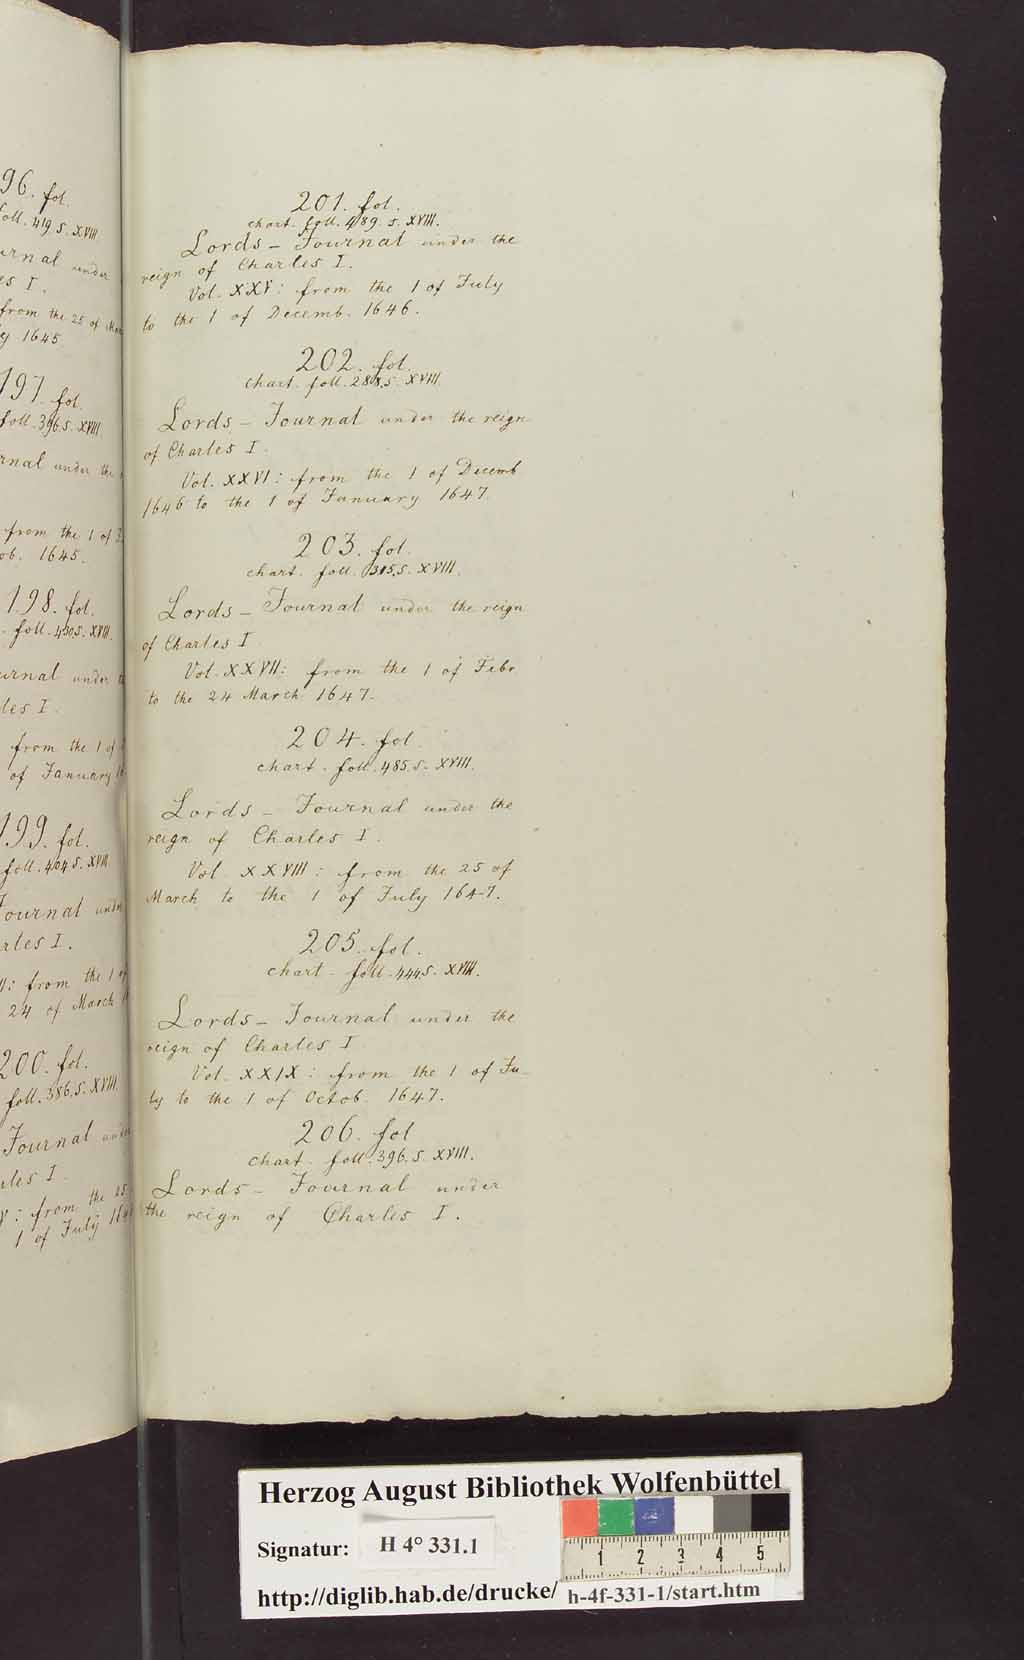 96. fol.
foll. 419. s. XVIII
urnal under
es I.
from the 25 of Mar
y 1645
197. fol.
foll. 396. s. XVIII.
rnal under the
from the 1 of
ob. 1645.
198. fol.
foll. 450. s. XVIII.
urnal under
les I.
from the 1 of
of January
199. fol.
foll. 404 s. XVIII
Journal under
rles I.
from the 1 of
24 of March
200. fol.
foll. 386. s. XVIII
Journal under
rles I.
from the 25
1 of July
201. fol.
chart. foll. 489. s. XVIII.
Lords - Journal under the
reign of Charles I.
Vol. XXV: from the 1 of July
to the 1 of Decemb. 1646.
202. fol.
chart. foll. 288. s. XVIII.
Lords - Journal under the reign
of Charles I.
Vol. XXVI: from the 1 of Decemb
1646 to the 1 of January 1647.
203. fol.
chart. foll. 305. s. XVIII.
Lords - Journal under the reign
of Charles I
Vol. XXVII: from the 1 of Febr.
to the 24 March 1647.
204. fol.
chart. foll. 485. s. XVIII.
Lords - Journal under the
reign of Charles I.
Vol. XXVIII: from the 25 of
March to the 1 of July 1647.
205. fol.
chart. foll. 444 s. XVIII.
Lords - Journal under the
reign of Charles I
Vol. XXIX: from the 1 of Ju-
ly to the 1 of Octob. 1647.
206. fol
chart. foll. 396. s. XVIII.
Lords - Journal under
the reign of Charles I.
Herzog August Bibliothek Wolfenbüttel
Signatur: H 4° 331.1
1 2 3 4 5
http://diglib.hab.de/drucke/ h-4f-331-1/start.htm